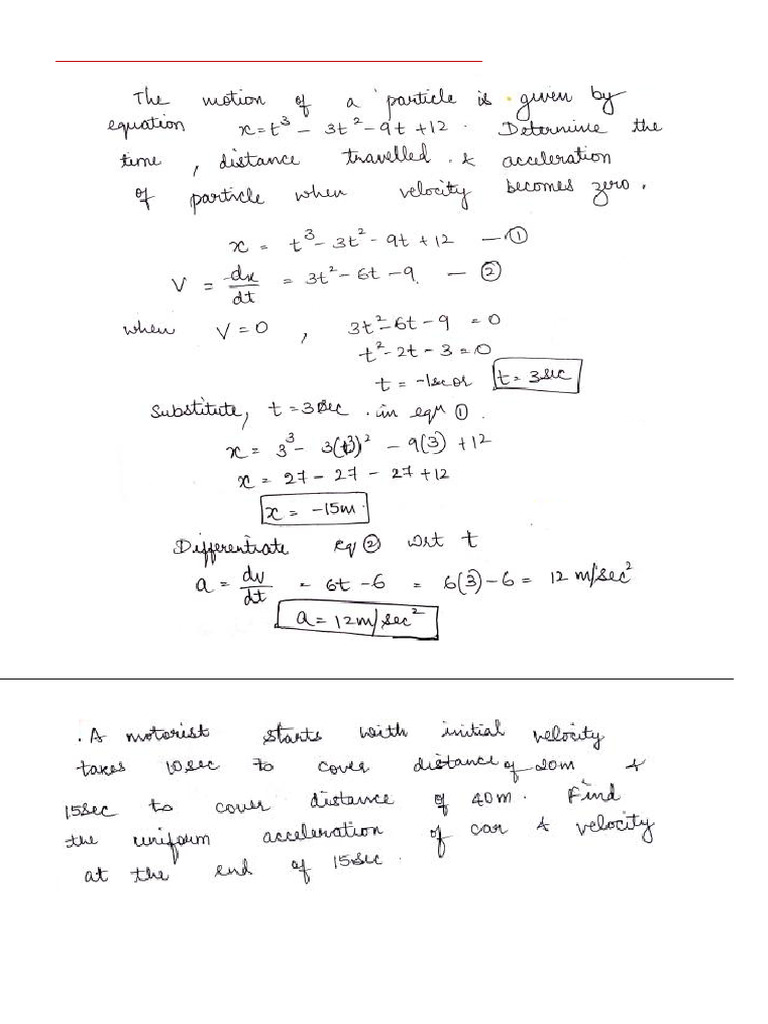 The motion of a particle is given by
equation x = t³ - 3t² - 9t + 12. Determine the
time, distance travelled & acceleration
of particle when velocity becomes zero.
x = t³ - 3t² - 9t + 12 — ①
V = dx/dt = 3t² - 6t - 9. — ②
when V = 0, 3t² - 6t - 9 = 0
t² - 2t - 3 = 0
t = -1sec or t = 3sec
Substitute, t = 3sec. in eqn ①.
x = 3³ - 3(3)² - 9(3) + 12
x = 27 - 27 - 27 + 12
x = -15m.
Differentiate eq ② wrt t
a = dv/dt = 6t - 6 = 6(3) - 6 = 12 m/sec²
a = 12m/sec²
. A motorist starts with initial velocity
takes 10sec to cover distance of 20m &
15sec to cover distance of 40m. Find
the uniform acceleration of car & velocity
at the end of 15sec.